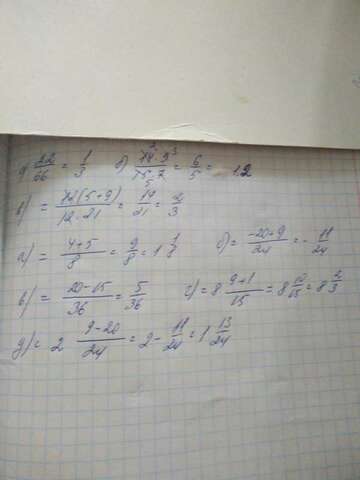 а) 22/66 = 1/3 б) 14·9/15·7 = 6/5 = 1.2
в) = 12(5+9)/12·21 = 14/21 = 2/3
а) = 4+5/8 = 9/8 = 1 1/8 б) = -20+9/24 = - 11/24
в) = 20-15/36 = 5/36 г) = 8 9+1/15 = 8 10/15 = 8 2/3
д) = 2 9-20/24 = 2 - 11/24 = 1 13/24